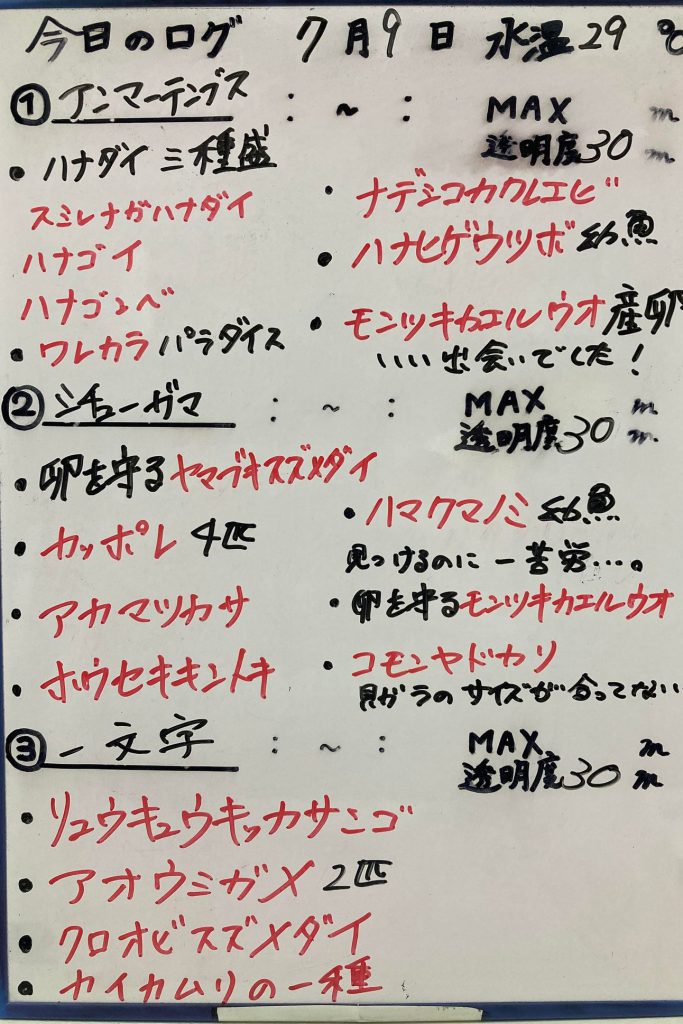 今日のログ 7月9日 水温29℃
① アンマーテングス : ~ : MAX m
透明度30m
・ハナダイ 三種盛
スミレナガハナダイ
ハナゴイ
ハナゴンベ
・ワレカラ パラダイス
・ナデシコカクレエビ
・ハナヒゲウツボ 幼魚
・モンツキカエルウオ 産卵
いい出会いでした!
② シチューガマ : ~ : MAX m
透明度30m
・卵を守るヤマブキスズメダイ
・カッポレ 4匹
・アカマツカサ
・ホウセキキントキ
・ハマクマノミ 幼魚
見つけるのに一苦労…。
・卵を守るモンツキカエルウオ
・コモンヤドカリ
貝がらのサイズが合ってない
③ 一文字 : ~ : MAX m
透明度30m
・リュウキュウキッカサンゴ
・アオウミガメ 2匹
・クロオビスズメダイ
・カイカムリの一種